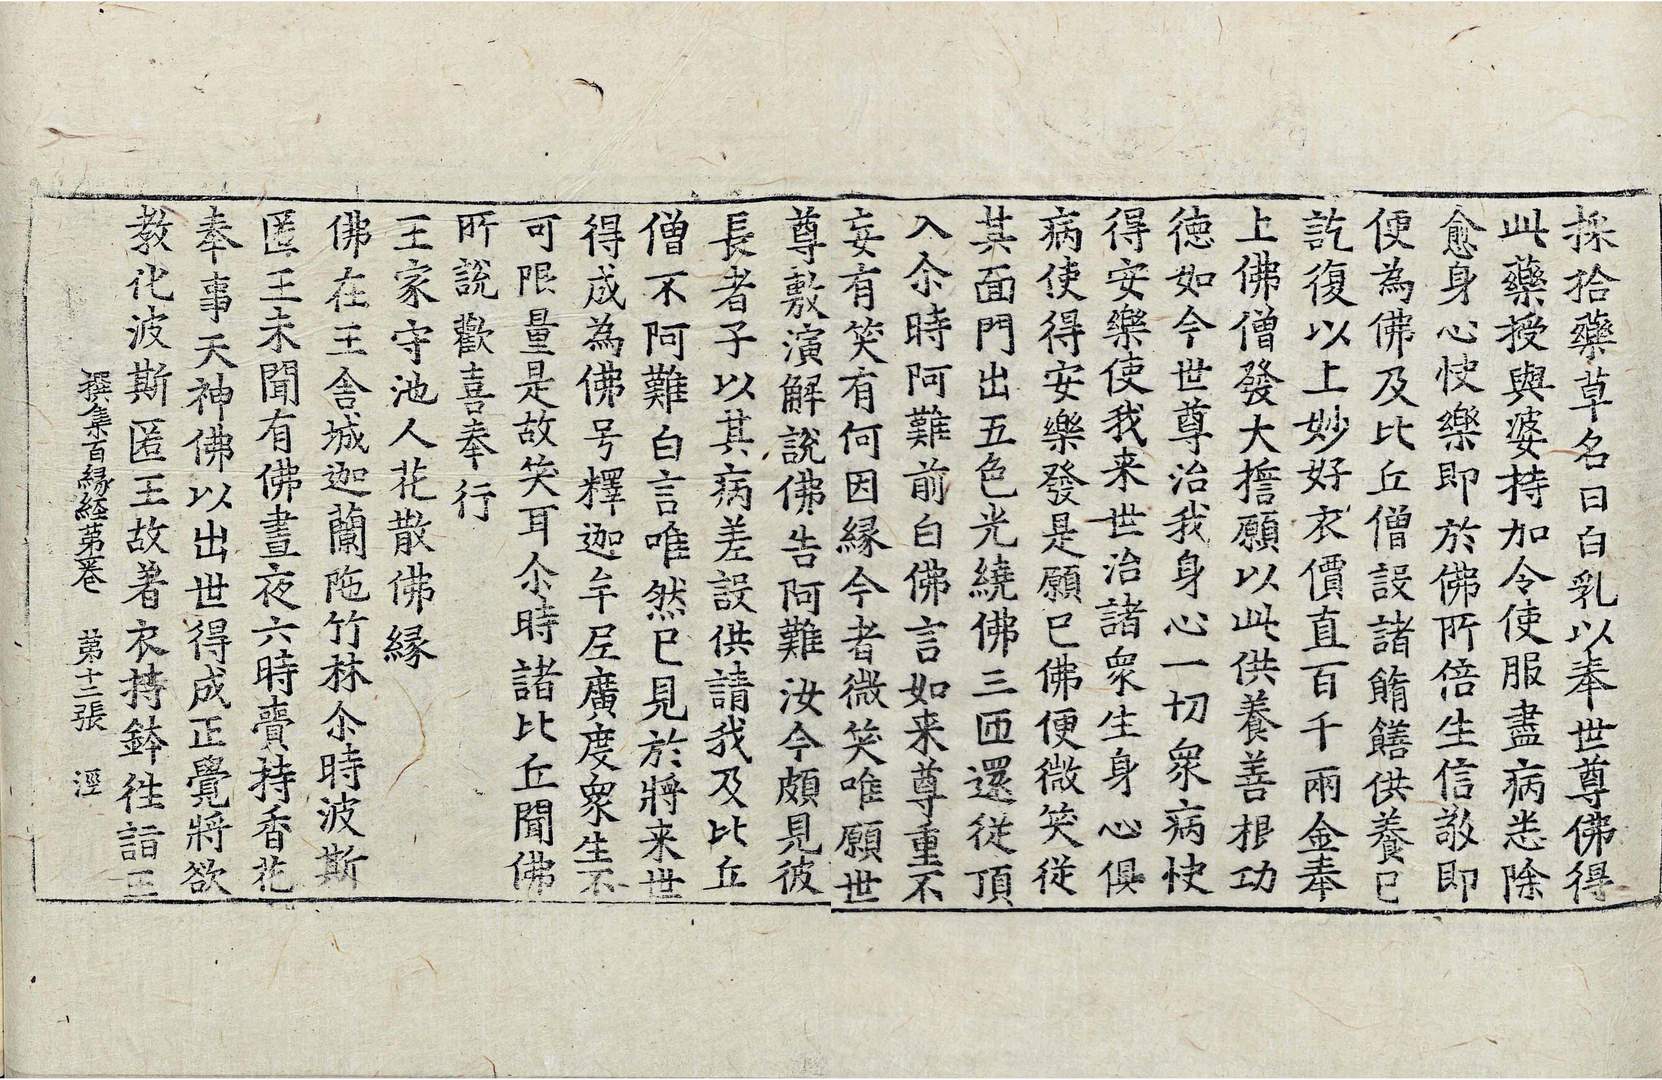 採拾藥草名曰白乳以奉世尊佛得
此藥授與婆持加令使服盡病悉除
愈身心快樂即於佛所倍生信敬即
便為佛及比丘僧設諸餚饍供養已
訖復以上妙好衣價直百千兩金奉
上佛僧發大擔願以此供養善根功
徳如今世尊治我身心一切衆病快
得安樂使我来世治諸衆生身心俱
病使得安樂發是願已佛便微笑従
其面門出五色光繞佛三匝還従頂
入尒時阿難前白佛言如来尊重不
妄有笑有何因縁今者微笑唯願世
尊敷演解說佛告阿難汝今頗見彼
長者子以其病差設供請我及比丘
僧不阿難白言唯然已見於將来世
得成為佛号釋迦牟尼廣度衆生不
可限量是故笑耳尒時諸比丘聞佛
所說歡喜奉行
王家守池人花散佛縁
佛在王舍城迦蘭陁竹林尒時波斯
匿王未聞有佛晝夜六時賷持香花
奉事天神佛以出世得成正覺將欲
教化波斯匿王故著衣持鉢往詣王
撰集百縁経第二卷 第十二張 涇